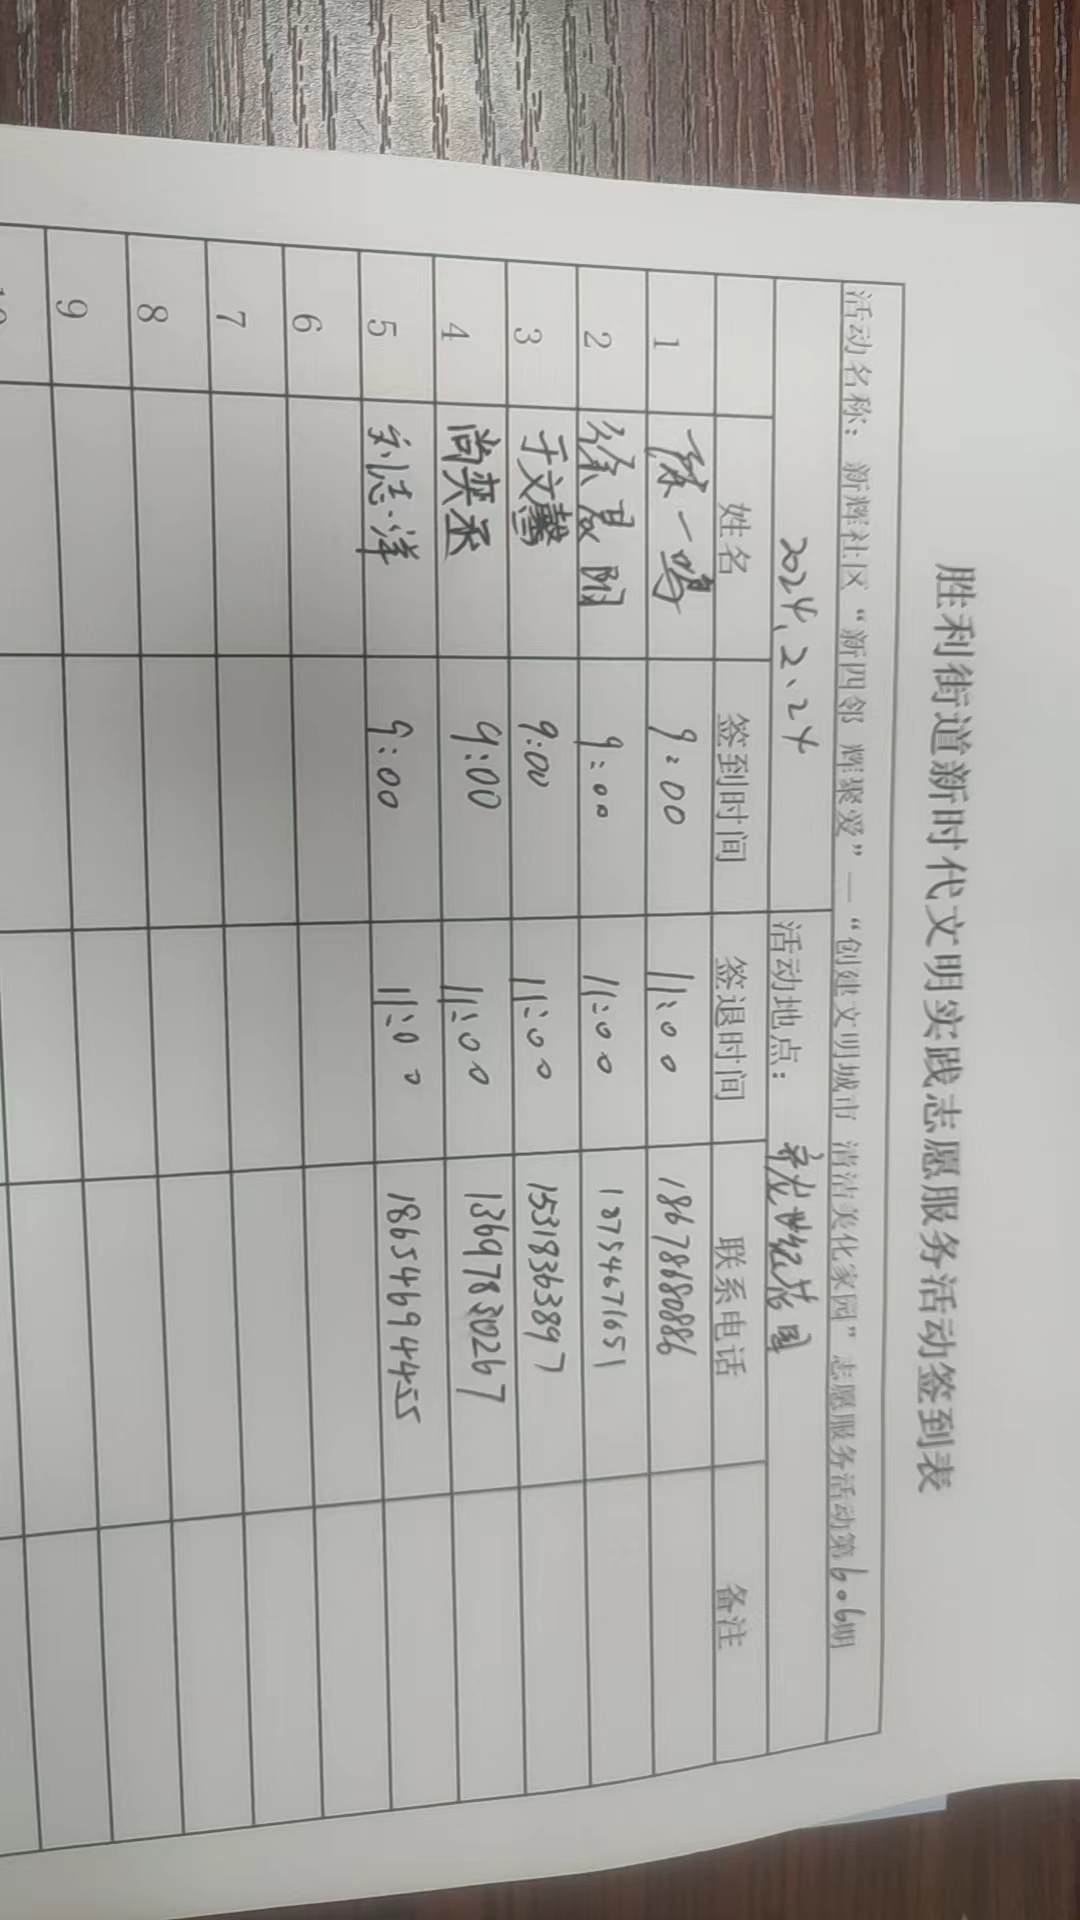 胜利街道新时代文明实践志愿服务活动签到表
活动名称：新辉社区“新四邻 辉聚爱”—“创建文明城市 清洁美化家园”志愿服务活动第606期
2024、2、24 活动地点： 龙世纪花园
姓名 签到时间 签退时间 联系电话 备注
1 陈一鸣 9:00 11:00 18678680886
2 徐晨阳 9:00 11:00 18754671651
3 于文馨 9:00 11:00 15318363897
4 尚奕丞 9:00 11:00 13697830267
5 刘志洋 9:00 11:00 18654694455
6
7
8
9
10